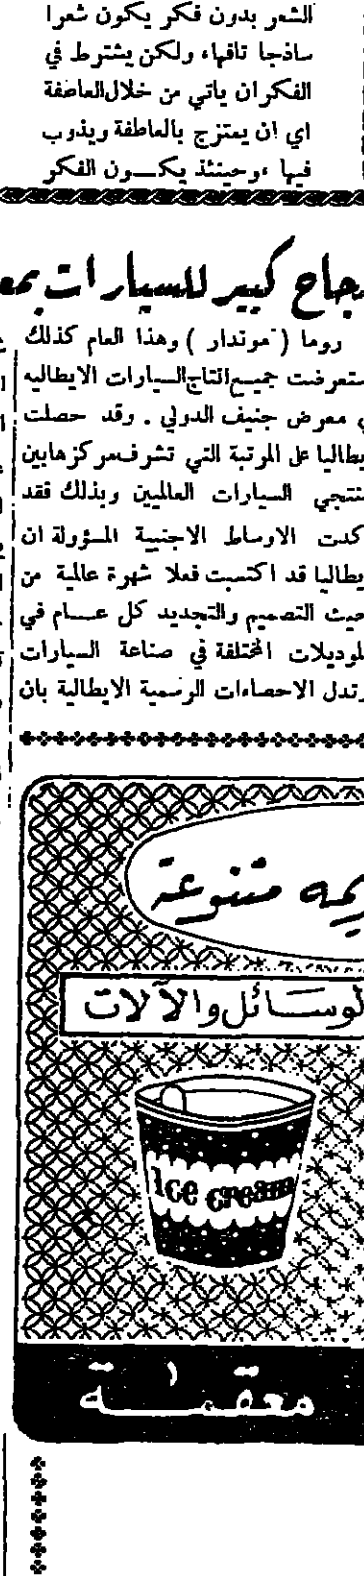 الشعر بدون فكر يكون شعرا
ساذجا تافها، ولكن يشترط في
الفكر ان ياتي من خلال العاطفة
اي ان يمتزج بالعاطفة ويذوب
فيها ، وحينئذ يكـــون الفكر
جاح كبير للسيارات بمع
روما ( موندار ) وهذا العام كذلك
ستعرضت جميـع انتاج السيارات الايطاليه
ي معرض جنيف الدولي . وقد حصلت
يطاليا على المرتبة التي تشرف مركزها بين
نتجي السيارات العالميين وبذلك فقد
كدت الاوساط الاجنبية المسؤولة ان
يطاليا قد اكتسبت فعلا شهرة عالمية من
حيث التصميم والتجديد كل عـــام في
لموديلات المختلفة في صناعة السيارات
وتدل الاحصاءات الرسمية الايطالية بان
يمه متنوعة
لوســائل والآلات
Ice cream
معقمـــة